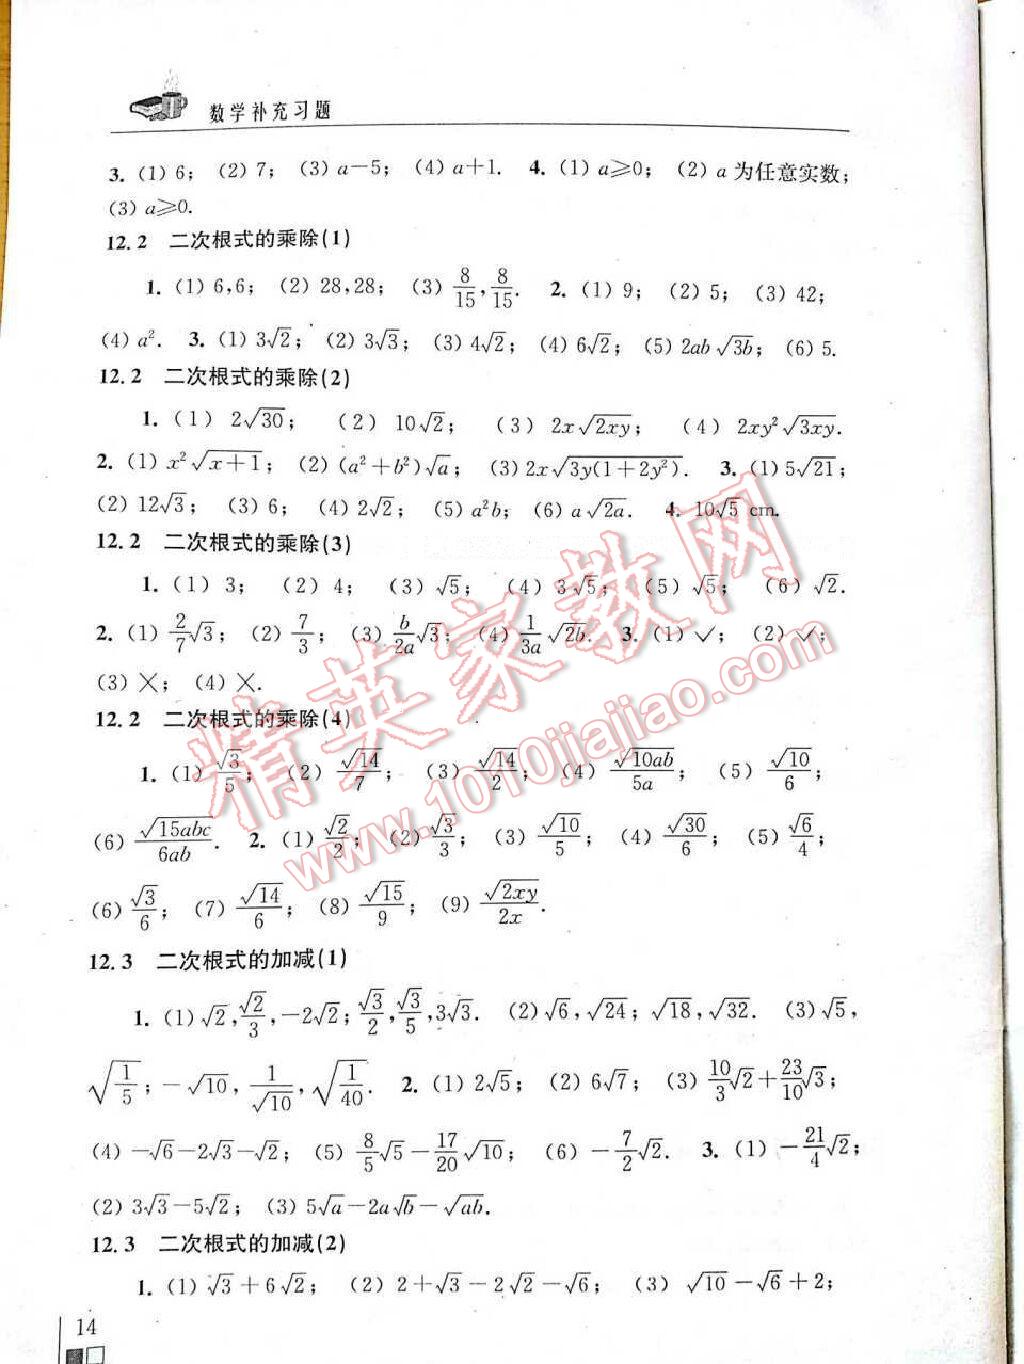 数学补充习题
3. (1) 6; (2) 7; (3) a-5; (4) a+1. 4. (1) a≥0; (2) a 为任意实数;
(3) a≥0.
12.2 二次根式的乘除(1)
1. (1) 6,6; (2) 28,28; (3) 8/15, 8/15. 2. (1) 9; (2) 5; (3) 42;
(4) a². 3. (1) 3√2; (2) 3√3; (3) 4√2; (4) 6√2; (5) 2ab√3b; (6) 5.
12.2 二次根式的乘除(2)
1. (1) 2√30; (2) 10√2; (3) 2x√2xy; (4) 2xy²√3xy.
2. (1) x²√(x+1); (2) (a²+b²)√a; (3) 2x√(3y(1+2y²)). 3. (1) 5√21;
(2) 12√3; (3) 6; (4) 2√2; (5) a²b; (6) a√2a. 4. 10√5 cm.
12.2 二次根式的乘除(3)
1. (1) 3; (2) 4; (3) √5; (4) 3√5; (5) √5; (6) √2.
2. (1) 2/7√3; (2) 7/3; (3) b/2a√3; (4) 1/3a√2b. 3. (1) ✓; (2) ✓;
(3) ×; (4) ×.
12.2 二次根式的乘除(4)
1. (1) √3/5; (2) √14/7; (3) √14/2; (4) √10ab/5a; (5) √10/6;
(6) √15abc/6ab. 2. (1) √2/2; (2) √3/3; (3) √10/5; (4) √30/6; (5) √6/4;
(6) √3/6; (7) √14/6; (8) √15/9; (9) √2xy/2x.
12.3 二次根式的加减(1)
1. (1) √2, √2/3, -2√2; √3/2, √3/5, 3√3. (2) √6, √24; √18, √32. (3) √5,
√(1/5); -√10, 1/√10, √(1/40). 2. (1) 2√5; (2) 6√7; (3) 10/3√2+23/10√3;
(4) -√6-2√3-√2; (5) 8/5√5-17/20√10; (6) -7/2√2. 3. (1) -21/4√2;
(2) 3√3-5√2; (3) 5√a-2a√b-√ab.
12.3 二次根式的加减(2)
1. (1) √3+6√2; (2) 2+√3-2√2-√6; (3) √10-√6+2;
14
精英家教网
www.1010jiajiao.com